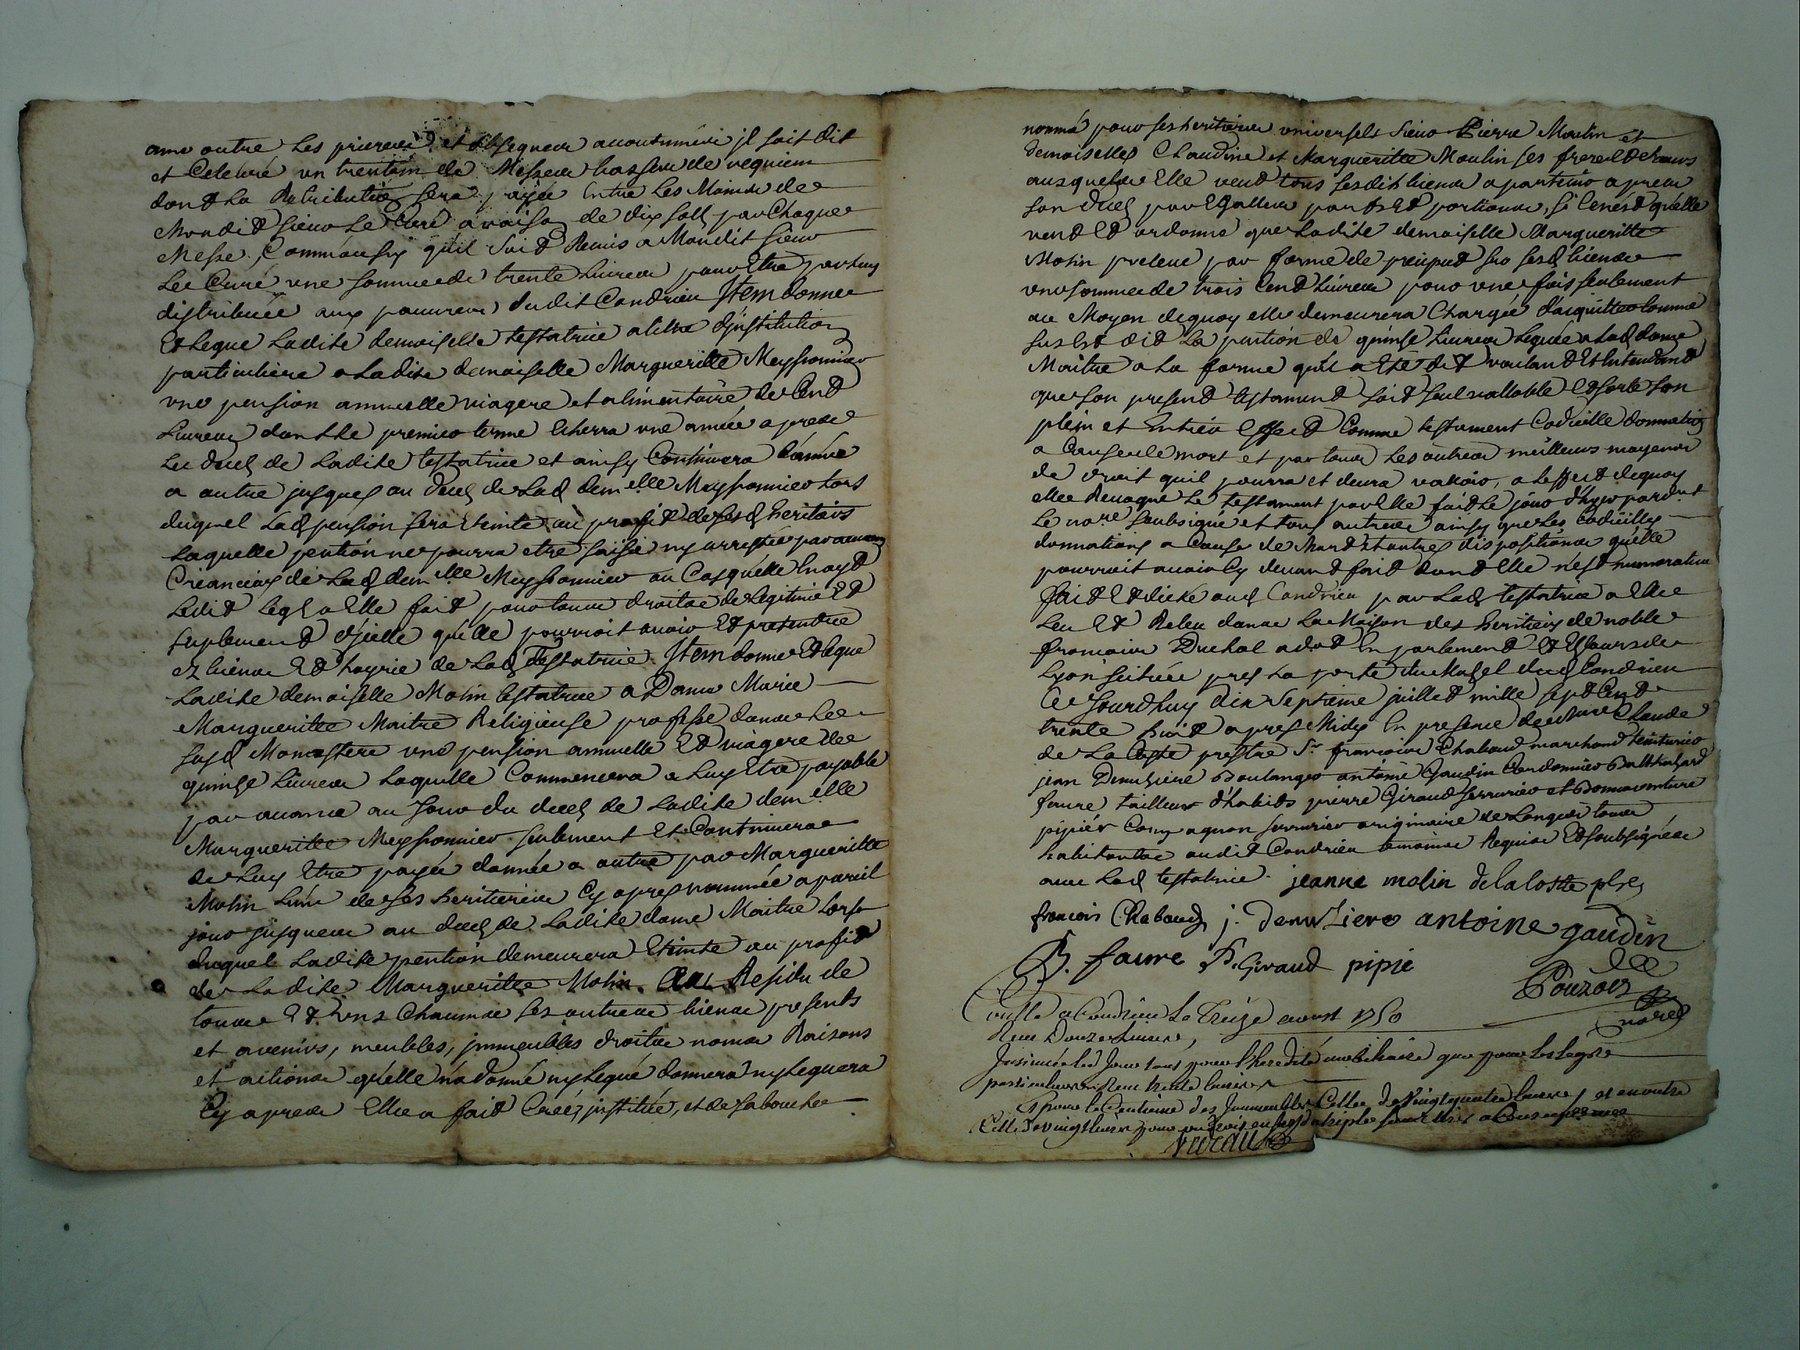 ame outre les prieres et obseques accoutumées jl soit dit
et Celebré un trentain de Messes basses de requiem
dont la Retribution sera payée Entre Les Mains de
Mondit sieur Le Curé a raison de dix solz par Chaque
Messe, Comm'aussy quil soit Remis a Mondit sieur
Le Curé une somme de trente Livres pour Etre par luy
distribuée aux pauvres dudit Condrieu Jtem donne
Et legue Ladite demoiselle testatrice a titre d'jnstitution
particuliere a Ladite demoiselle Margueritte Meyssonnier
une pension annuelle viagere et alimentaire de Cent
Livres dont le premier terme Echerra une année apres
Le deces de Ladite testatrice et ainsy Continuera d'année
a autre jusques au deces de Lad. demelle Meyssonnier Lors
duquel Lad. pension sera Eteinte au profit de sesd. heritiers
Laquelle pention ne pourra etre saisie ny arrestée par aucuns
Créanciers de Lad. demelle Meyssonnier au Cas quelle En ayt
Ledit legs a Elle fait pour tous droits de Legitime Et
suplement d'jcelle qu'elle pourroit avoir Et pretendre
Ez biens Et hoyrie de Lad. Testatrice. Jtem donne Et legue
Ladite demoiselle Molin testatrice a Dame Marie
Margueritte Maitre Religieuse professe dans le
susd. Monastere une pension annuelle Et viagere de
quinze Livres Laquelle Commencera a Luy Etre payable
par avance au jour du deces de Ladite demelle
Margueritte Meyssonnier seulement Et Continuera
de Luy Etre payée d'année a autre par Margueritte
Molin L'une de ses heritieres Cy apres nommée a pareil
jour jusques au deces de Ladite dame Maitre Lors
duquel Ladite pention demeurera Eteinte au profit
de Ladite Margueritte Molin. Au Residu de
tous Et Uns Chacuns ses autres biens presents
et avenirs, meubles, jmmeubles droits noms Raisons
et actions qu'elle n'a donné ny legué donnera ny leguera
Cy apres Elle a fait Créé, jnstitué, et de sa bouche
nommé pour ses heritiers universels sieur Pierre Moulin et
demoiselles Claudine et Margueritte Moulin ses frere et sœurs
ausquels Elle veut tous sesdits biens apartenir apres
son deces par Egalles parts Et portions, si Ce n'est qu'elle
veut Et ordonne que Ladite demoiselle Margueritte
Molin preleve par forme de préciput sur sesd. biens
une somme de trois Cent Livres pour une fois seulement
au Moyen dequoy elle demeurera Chargée d'acquitter Comme
sus Est dit La pention de quinse Livres leguée a Lad. dame
Maitre a La forme qu'il a Eté dit voulant Et Entendant
que son present testament soit seul vallable Et sorte son
plein et Entier Effect Comme testament Codicille donnation
a Cause de mort et par tous Les autres meilleurs moyens
de droit quil pourra et devra valloir, a l'effect dequoy
elle Revoque Le testament par Elle fait Le jour d'hyer pardevt
Le nore soubsigné et tous autres ainsy que Les Codicilles
donnations a Cause de Mort Et autres dispositions qu'elle
pourroit avoir Cy devant fait dont Elle n'est memorative
Fait Et dicté aud. Condrieu par Lad. testatrice a Elle
Leu Et Releu dans La Maison des heritiers de noble
François Duchol advot En parlement Et Ez Cours de
Lyon scituée pres La porte du Mazel dud. Condrieu
Ce jourdhuy dix septieme juillet mille sept Cent
trente huit apres Midy En presence de Mre Claude
de La Coste prestre Sr françois Chabaud marchand teinturier
jean Deruziere Boulanger antoine Gaudin Cordonnier Balthazard
faure tailleur d'habits pierre Giraud serrurier et Bonnaventure
pipier Compagnon serrurier originaire de Languer tous
habitants audit Condrieu temoins Requis Et soubsignés
avec Lad. testatrice. jeanne molin delaCoste ptre
francois Chabaud j. deruziere antoine gaudin
B. faure P. Giraud pipié
Pouzols
nore
Conllé a Condrieu Le Treize aoust 1750
Receu Douze Livres,
Jnsinué led. Jour tant pour l'heredité mobiliaire que pour les legs
particuliers Receu trente livres
Et pour le Centieme des Jmmeubles Celle de Vingt quatre livres et en outre
Celle de vingt livres pour